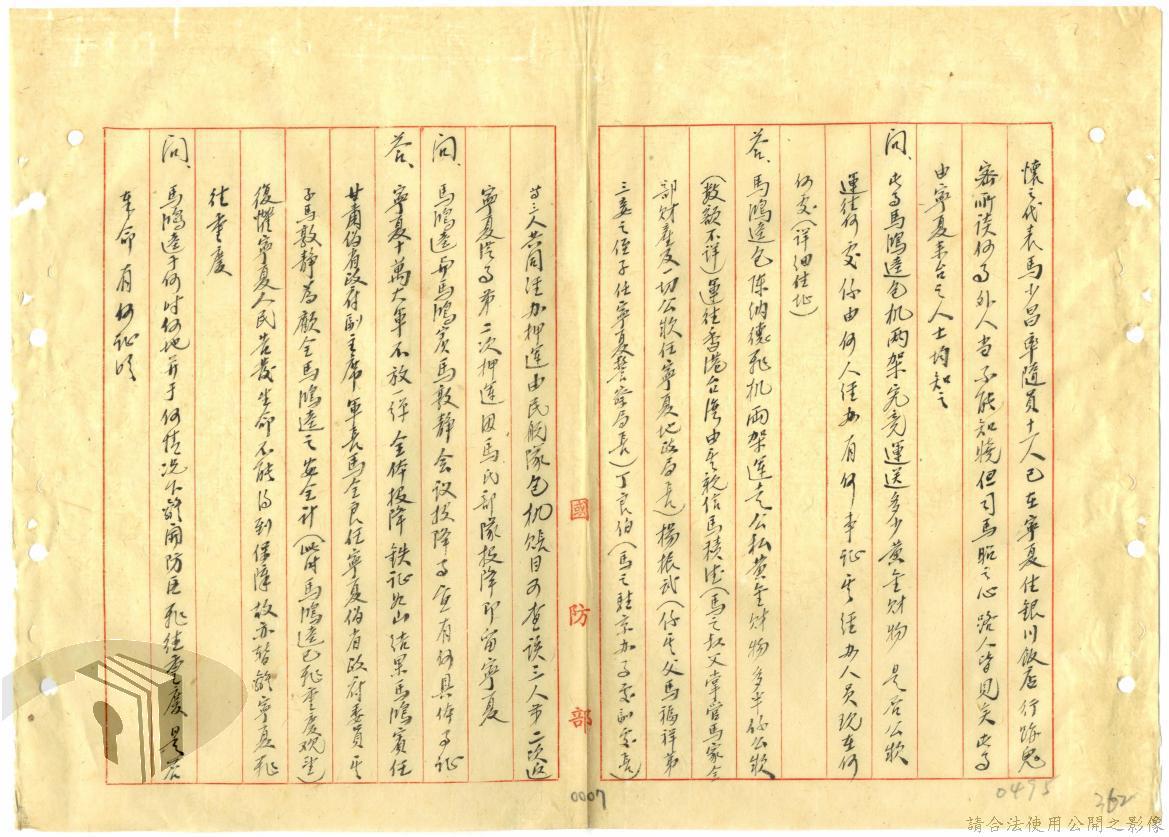 懷之代表馬少昌率隨員十一人已在寧夏住銀川飯店行跡鬼
密所談何事外人當不能知曉但司馬昭之心路人皆見矣此事
由寧夏來台之人士均知之
問、此事馬鴻逵包机两架究竟運送多少黃金財物 是否公欵
運往何處係由何人經办有何事証其經办人員現在何
何處(詳細住址)
答、馬鴻逵包陳納德飛机兩架運走公私黃金財物多半係公欵
(数額不詳)運往香港台灣由其親信馬積德(馬之叔父掌管馬家全
部財產及一切公欵任寧夏地政局長)楊振武(係其父馬福祥第
三妻之侄子任寧夏警察局長)丁良伯(馬之駐京办事處副處長)
等三人共同經办押運由民航隊包机賬目可查該三人第二次返
寧夏從事第二次押運因馬氏部隊投降即留寧夏
問、馬鴻逵與馬鴻賓馬敦靜会议投降事宜有何具体事証
答、寧夏十萬大軍不放一弹全体投降鉄証如山結果馬鴻賓任
甘肅伪省政府副主席軍長馬全良任寧夏伪省政府委員其
子馬敦靜為顧全馬鴻逵之安全計(此时馬鴻逵已飛重慶观望)
復懼寧夏人民告發生命不能得到保障故亦暂離寧夏飛
往重慶
問、馬鴻逵于何时何地并于何情况下離開防區飛往重慶 是否
奉命 有何証明
國防部
0007
0495
362
請合法使用公開之影像